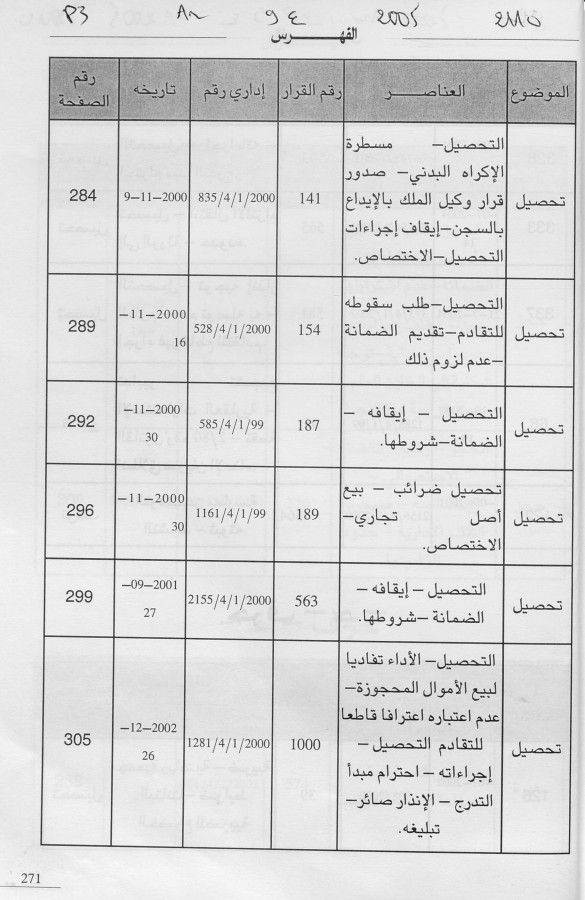 P3 An 9 E 2005 2110
الفهـــرس
الموضوع العناصـــر رقم القرار إداري رقم تاريخه رقم الصفحة
تحصيل
التحصيل– مسطرة
الإكراه البدني– صدور
قرار وكيل الملك بالإيداع
بالسجن–إيقاف إجراءات
التحصيل–الاختصاص.
141 835/4/1/2000 9-11-2000 284
تحصيل
التحصيل–طلب سقوطه
للتقادم–تقديم الضمانة
–عدم لزوم ذلك
154 528/4/1/2000 16–11–2000 289
تحصيل
التحصيل – إيقافه –
الضمانة–شروطها.
187 585/4/1/99 30–11–2000 292
تحصيل
تحصيل ضرائب – بيع
أصل تجاري–
الاختصاص.
189 1161/4/1/99 30–11–2000 296
تحصيل
التحصيل – إيقافه –
الضمانة –شروطها.
563 2155/4/1/2000 27–09–2001 299
تحصيل
التحصيل– الأداء تفاديا
لبيع الأموال المحجوزة–
عدم اعتباره اعترافا قاطعا
للتقادم التحصيل –
إجراءاته – احترام مبدأ
التدرج – الإنذار صائر–
تبليغه.
1000 1281/4/1/2000 26–12–2002 305
271